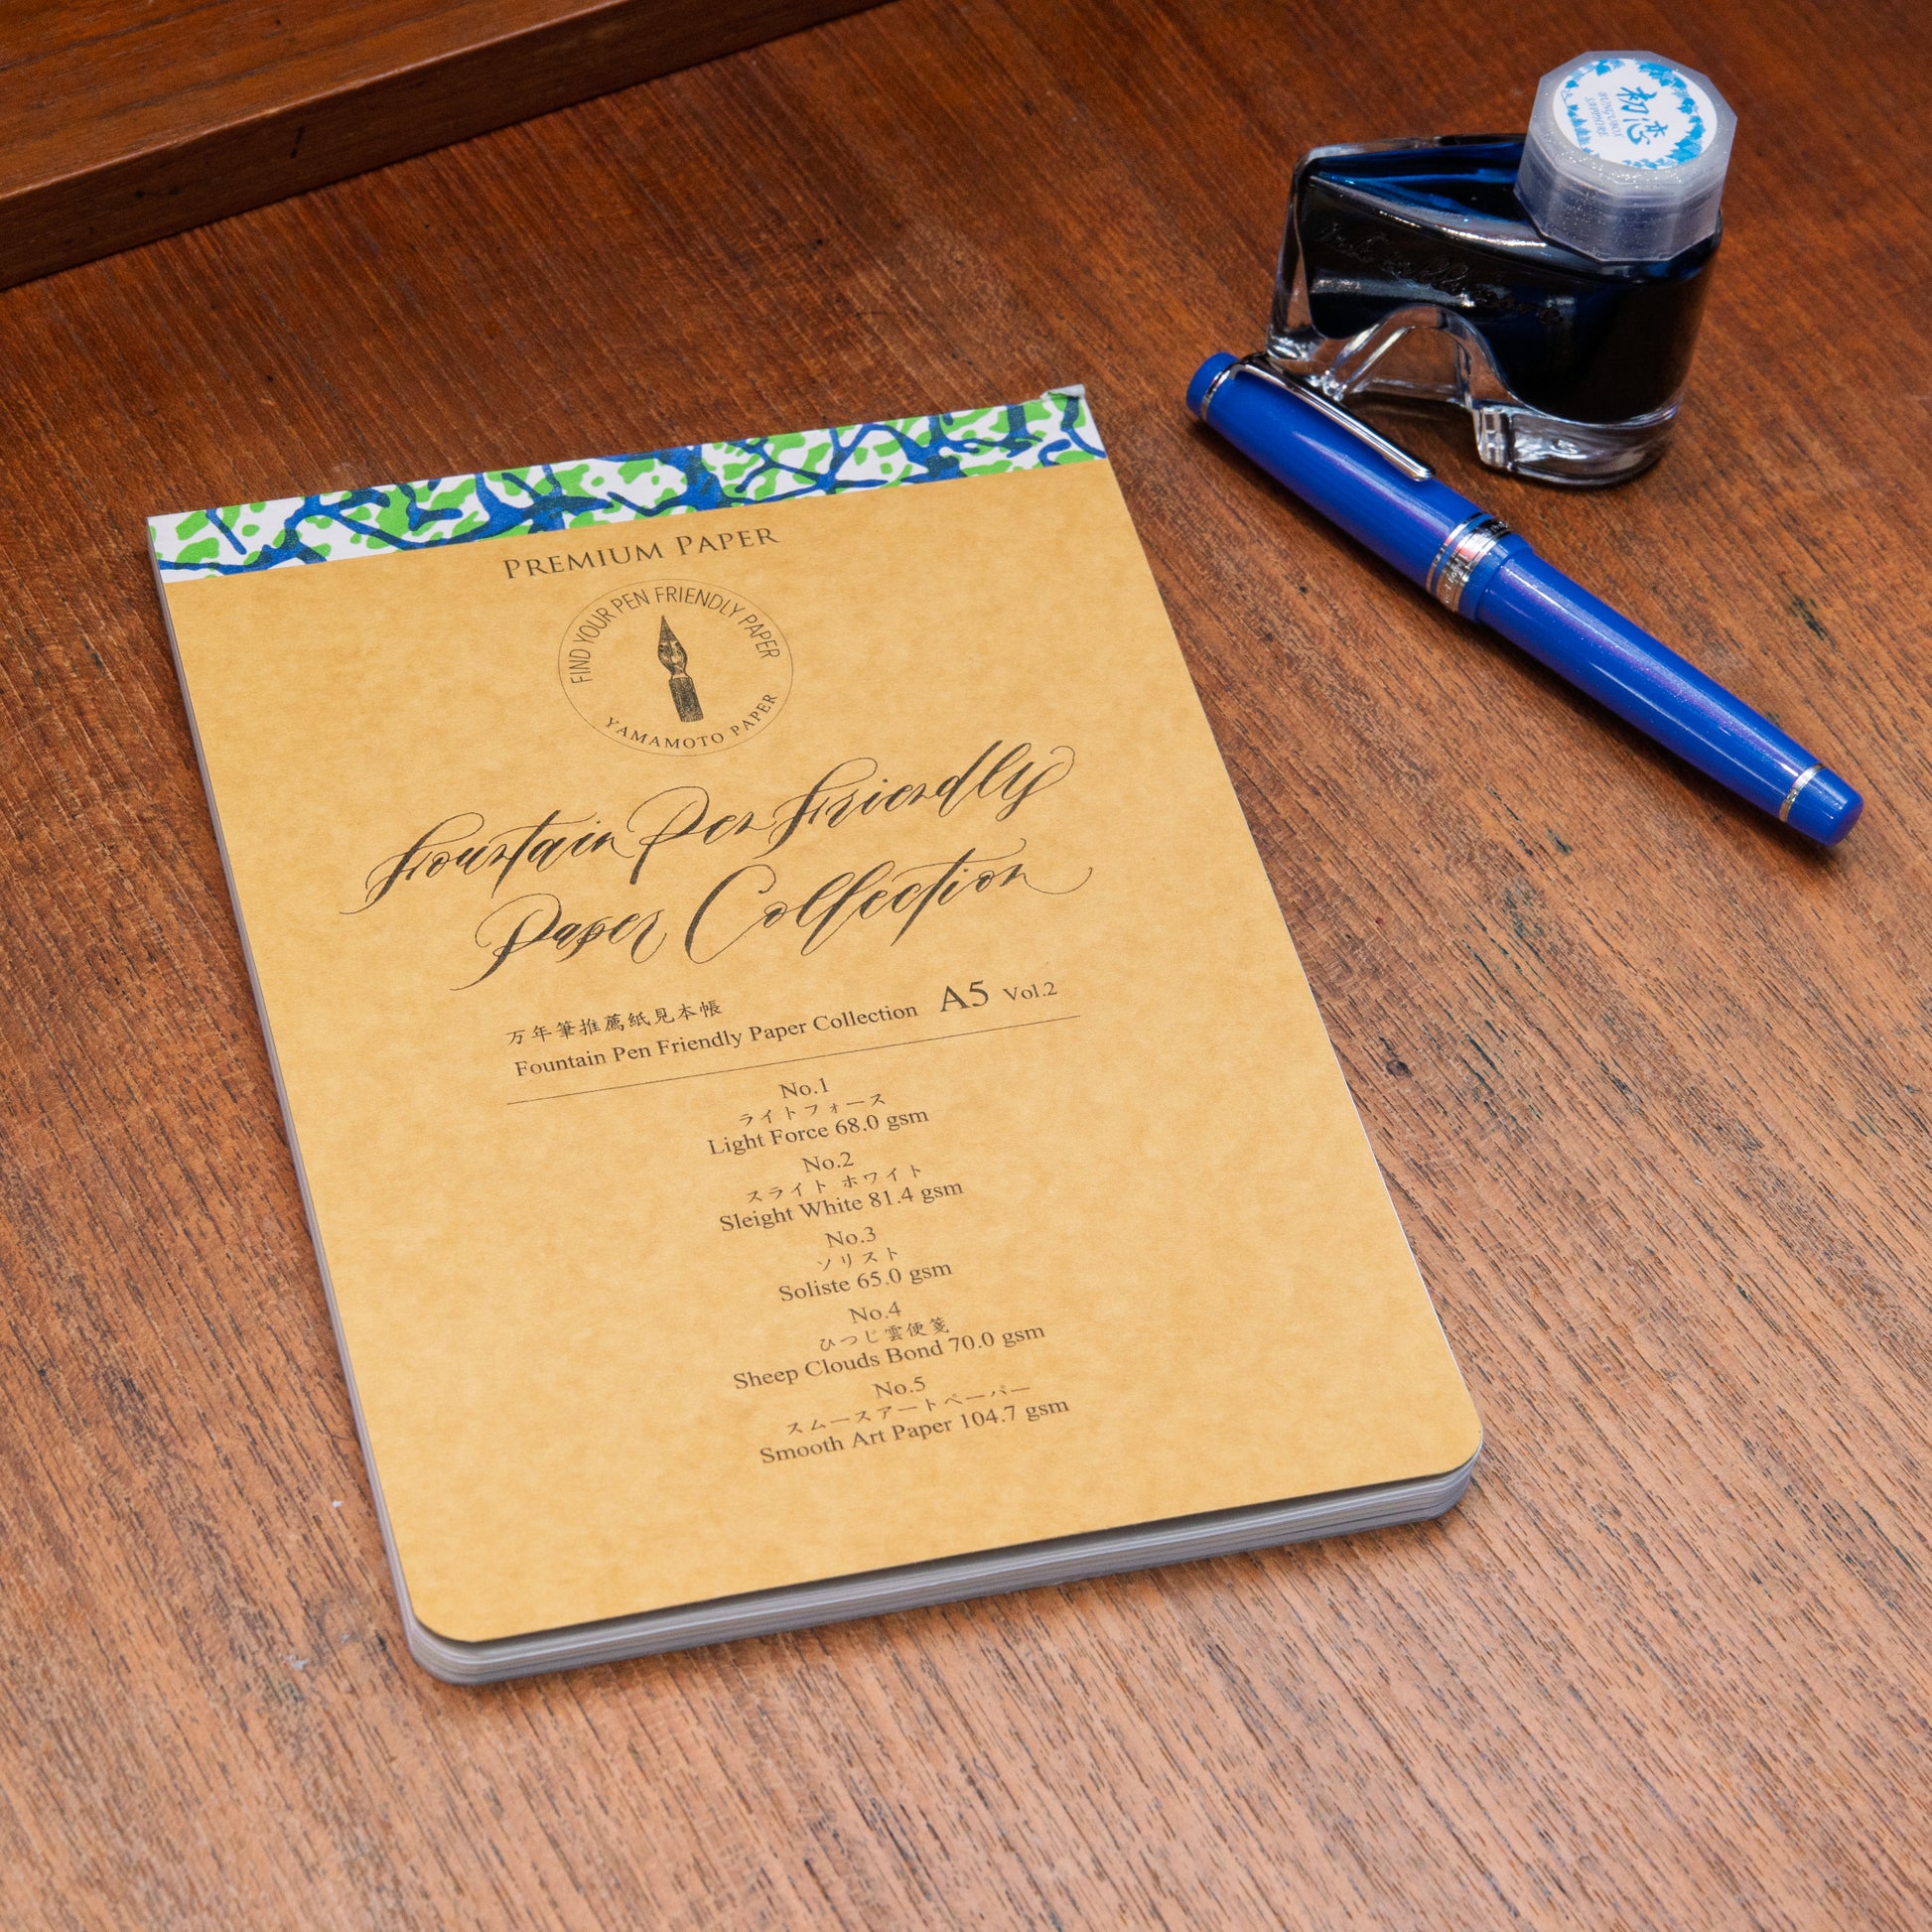 初恋
BUNGUBOX
SAPPHIRE
PREMIUM PAPER
FIND YOUR PEN FRIENDLY PAPER
YAMAMOTO PAPER
Fountain Pen Friendly
Paper Collection
万年筆推薦紙見本帳
Fountain Pen Friendly Paper Collection A5 Vol.2
No.1
ライトフォース
Light Force 68.0 gsm
No.2
スライト ホワイト
Sleight White 81.4 gsm
No.3
ソリスト
Soliste 65.0 gsm
No.4
ひつじ雲便箋
Sheep Clouds Bond 70.0 gsm
No.5
スムースアートペーパー
Smooth Art Paper 104.7 gsm